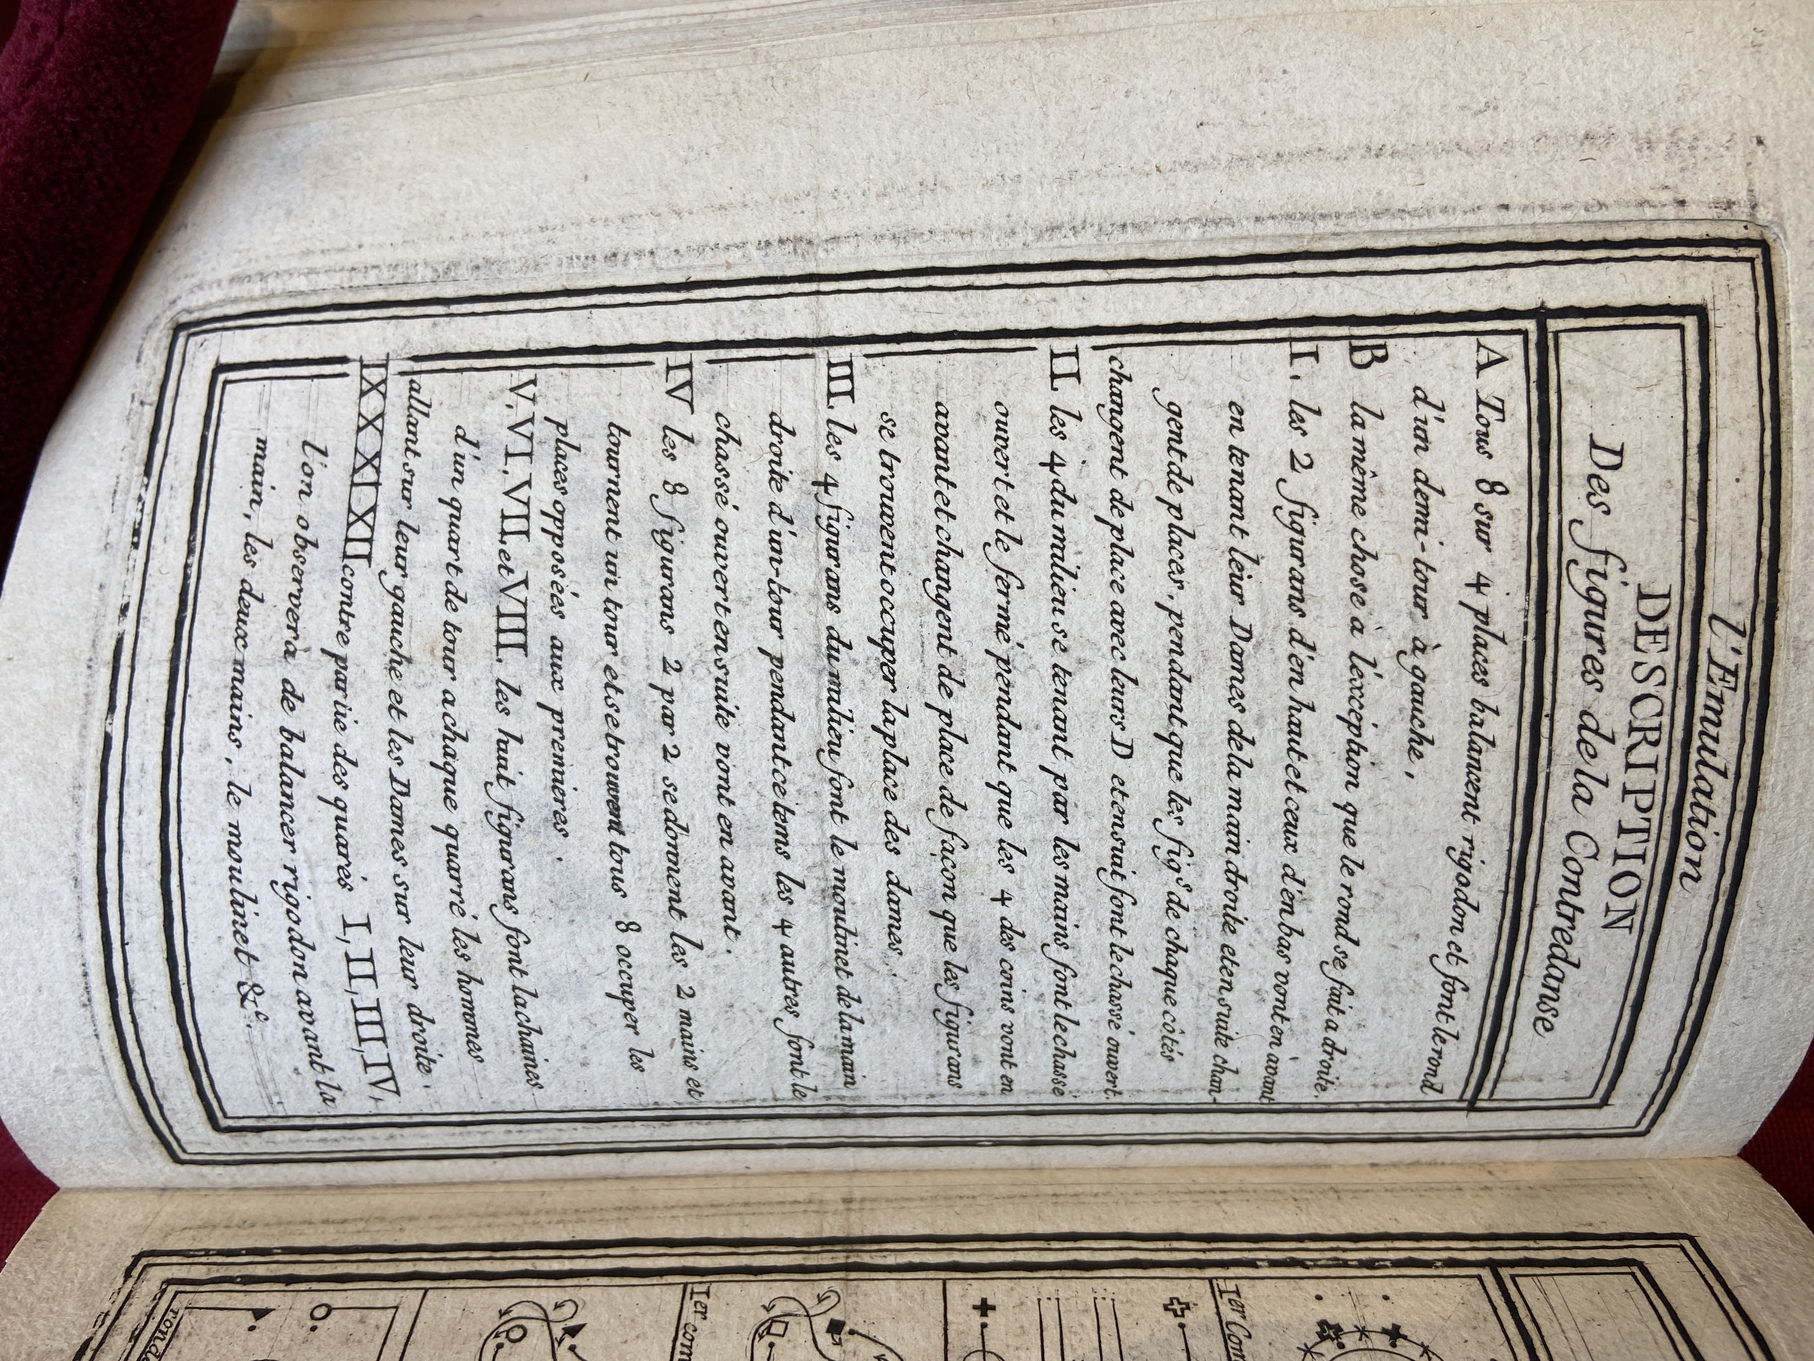 l'Emulation
DESCRIPTION
Des figures de la Contredanse
A Tous 8 sur 4 places balancent rigodon et font le rond
d'un demi-tour à gauche,
B la même chose à l'éxcéption que le rond se fait a droite.
I. les 2 figurans d'en haut et ceux d'en bas vont en avant
en tenant leur Dames de la main droite et en suite chan-
gent de places, pendant que les fig.s de chaque côtés
changent de place avec leurs D et ensuit font le chassé ouvert.
II. les 4 du milieu se tenant par les mains font le chassé
ouvert et le fermé pendant que les 4 des coins vont en
avant et changent de place de façon que les figurans
se trouvent occuper la place des dames.
III. les 4 figurans du milieu font le moulinet de la main
droite d'un-tour pendant ce tems les 4 autres font le
chassé ouvert ensuite vont en avant.
IV les 8 figurans 2 par 2 se donnent les 2 mains et
tournent un tour et se trouvent tous 8 occuper les
places opposées aux premieres.
V. VI. VII. et VIII. les huit figurans font la chaines
d'un quart de tour a chaque quarré les hommes
allant sur leur gauche et les Dames sur leur droite.
IX X XI XII contre partie des quarés I, II, III, IV,
l'on observera de balancer rigodon avant la
main, les deux mains, le moulinet &c.
1er Com
1er com
rond